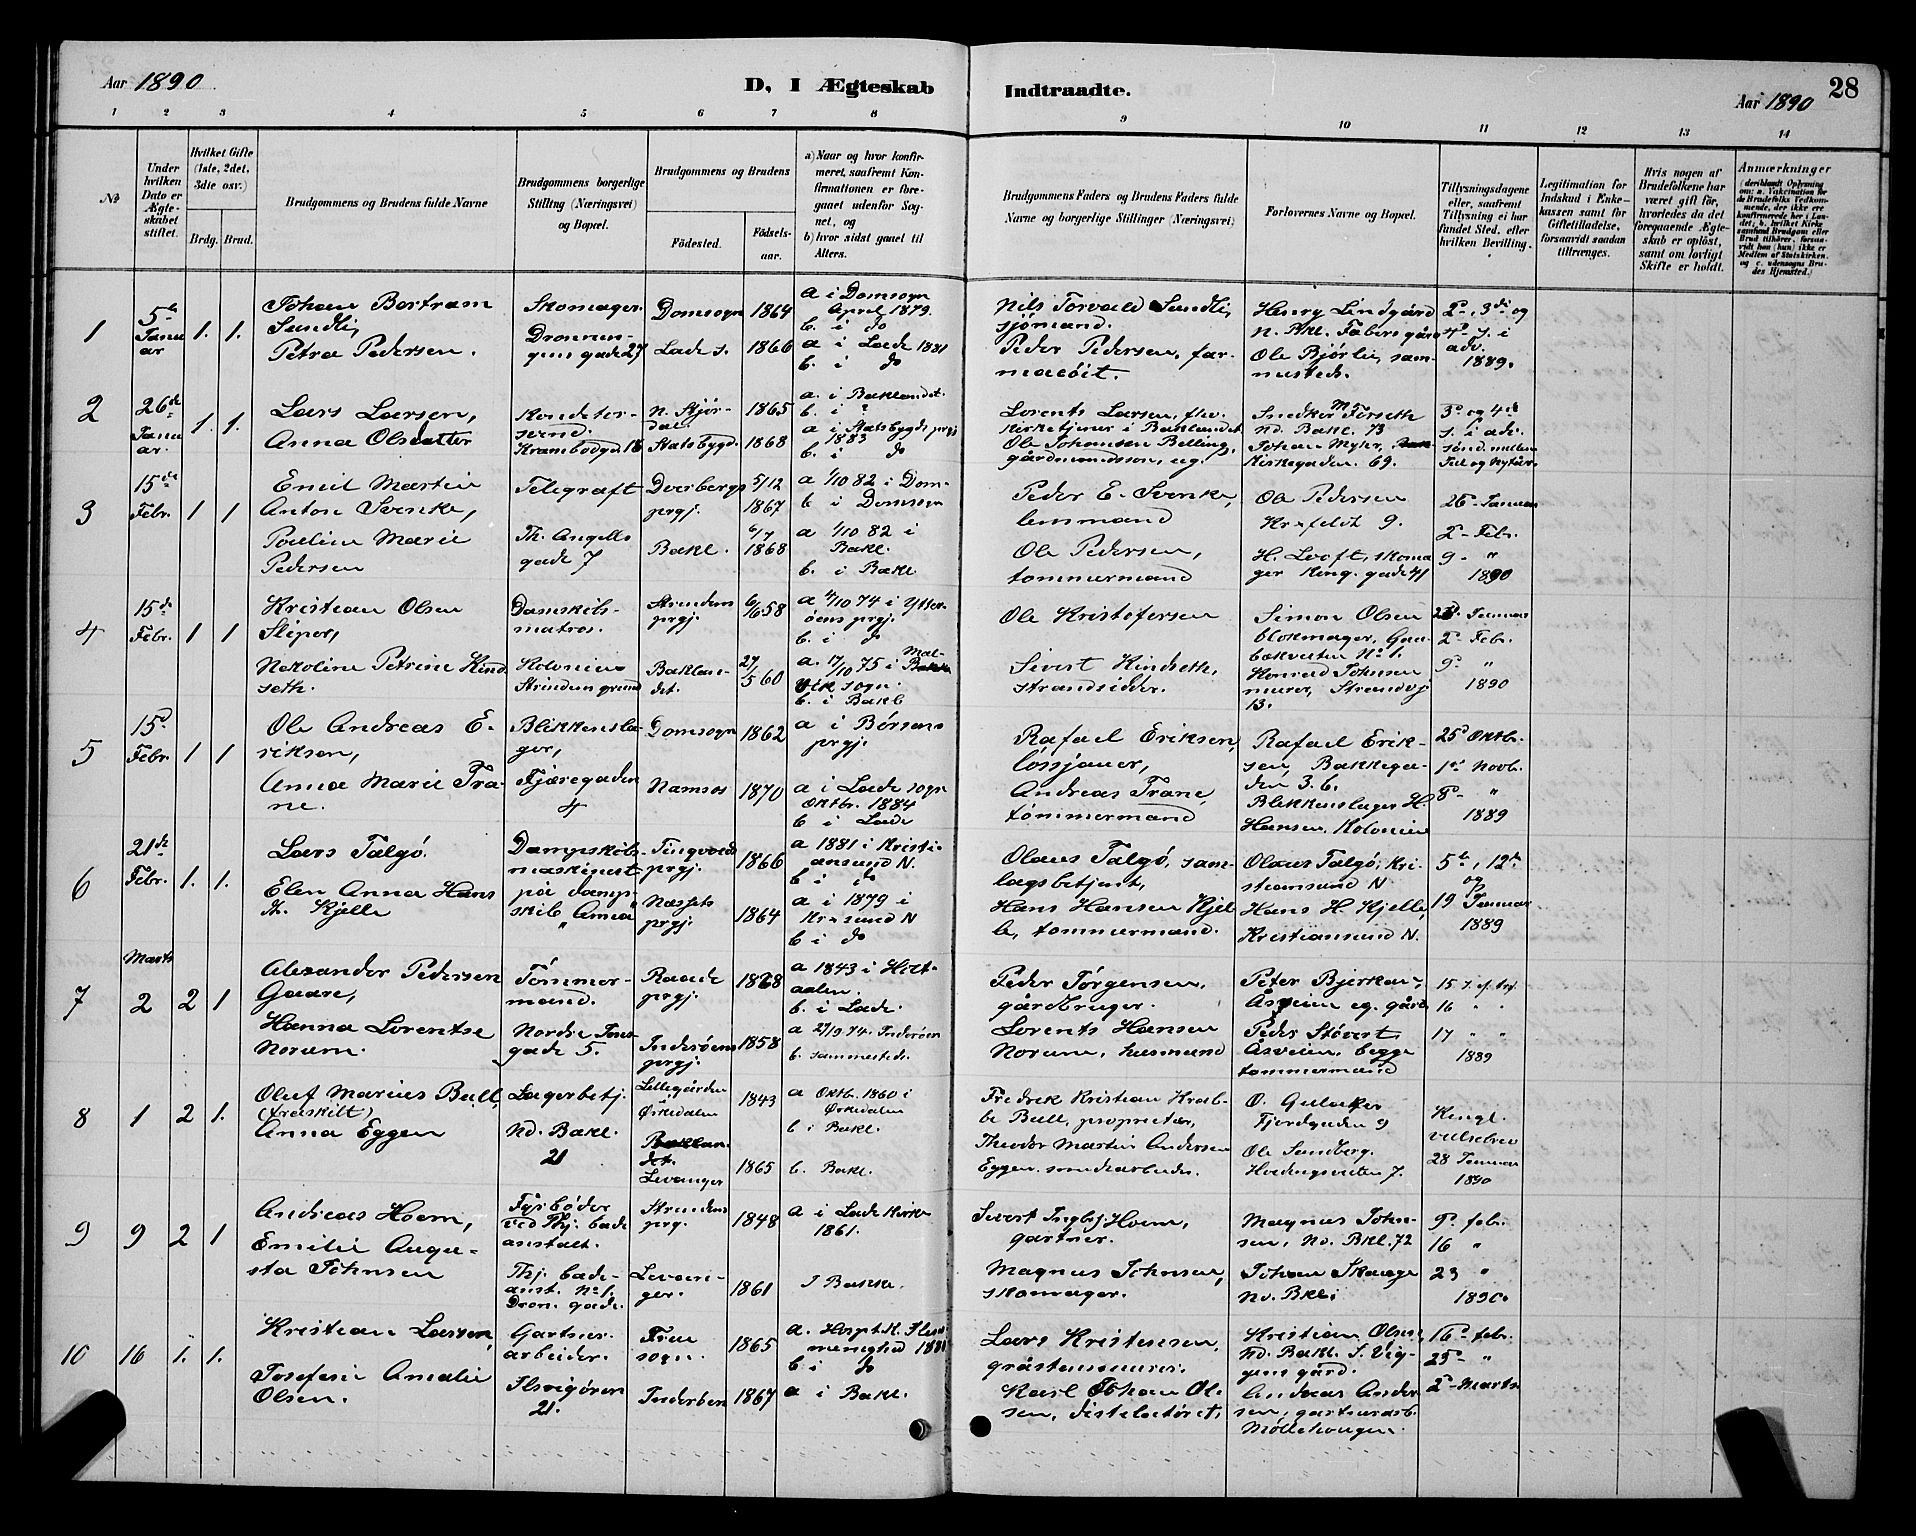 Aar 1890
D, I Ægteskab
Indtraadte.
Aar 1890
28
1 2 3 4 5 6 7 8 9 10 11 12 13 14
№
Under hvilken Dato er Ægteskabet stiftet.
Hvilket Gifte (1ste, 2det, 3die osv.)
Brdg. Brud.
Brudgommens og Brudens fulde Navne
Brudgommens borgerlige Stilling (Næringsvei) og Bopæl.
Brudgommens og Brudens
Födested.
Födselsaar.
a) Naar og hvor konfirmeret, saafremt Konfirmationen er foregaaet udenfor Sognet, og
b) hvor sidst gaaet til Alters.
Brudgommens Faders og Brudens Faders fulde Navne og borgerlige Stillinger (Næringsvei)
Forlovernes Navne og Bopæl.
Tillysningsdagene eller, saafremt Tillysning ei har fundet Sted, efter hvilken Bevilling.
Legitimation for Indskud i Enkekassen samt for Giftetilladelse, forsaavidt saadan tiltrænges.
Hvis nogen af Brudefolkene har været gift för, hvorledes da det foregaaende Ægteskab er oplöst, samt om lovligt Skifte er holdt.
Anmærkninger
1 5te Januar 1. 1.
Johan Bertram Sundli,
Petra Pedersen.
Skomager
Dronningens gade 27
Domsogn 1864
Lade s. 1866
a i Domsogn April 1879.
b. i do
a i Lade 1881
b. i do
Nils Torvald Sundli, sjømand.
Peder Pedersen, farmacöit.
Henry Lindgård
Ole Bjørli, sammesteds.
2den, 3die og 4de s. i adv. 1889.
2 26de Januar 1. 1.
Lars Larsen,
Anna Olsdatter
Konditorsvend.
Krambodgd. 18
N. Stjørdalen 1865
Stadsbygd. 1868
a. i Baklandet.
b. i "
a i Stadsbygds prgj 1883
b. i do
Lorents Larsen, kirketjener i Baklandet
Ole Johansen Belling, gårdmandssøn, ug.
Snedker M Forseth Nd. Bakl. 73
Johan Myhr, Kirkegaden. 69.
3die og 4de s. i adv. sønd. mellem Jul og Nytår.
3 15de Febr. 1 1
Emil Martin Anton Svenke,
Pauline Marie Pedersen
Telegrafist
Th. Angells gade 7
Dverbergs prgj. 5/12 1867
Bakl. 6/7 1868
a 1/10 82 i Dom-
b i Domsogn
a 1/10 82 i Bakl.
b. i Bakl
Peder E. Svenke, lensmand
Ole Pedersen, tømmermand
Ole Pedersen
H. Looft, skomager Kong. gade 41
26 Januar
2 Febr.
9 " 1890
4 15de Febr. 1 1
Kristian Olsen Sliper,
Nikoline Petrine Kindseth.
Damskibsmatros.
Kolonien Strindens grund
Strindens prgj. 6/6 58
Baklandet. 27/5 60
a 4/10 74 i Ytterøens prgj.
b. i do
a. 17/10 75 i Malvik sogn.
b. i Bakl
Ole Kristofersen
Sivert Kindseth, strandsidder.
Simon Olsen blokmager, Gaubækveiten No 1.
Konrad Johnsen murer, Strandvj 13.
Januar
2 Febr.
9 " 1890
5 15de Febr. 1 1
Ole Andreas Eriksen,
Anna Marie Trane.
Blikkenslager,
Fjæregaden 4
Domsogn 1862
Namsos 1870
a i Børsens prgj.
a i Lade sogn Oktbr. 1884
b i Lade
Rafael Eriksen,
Andreas Trane, tømmermand
Rafael Eriksen, Bakkegaden 3. b.
Blikkenslager H. Hansen, Kolonien
25de Oktbr.
1ste Novb.
8 " 1889
6 21de Febr. 1. 1.
Lars Talgø.
Elen Anna Hansdt. Kjelle
Dampskibsmaskinist på dampskib "Anna"
Tingvolds prgj. 1866
Næssets prgj. 1864
a 1881 i Kristiansund N.
b i do
a i 1879 i Kr.sund N
b i do
Olaus Talgø, samlagsbetjent,
Hans Hansen Kjelle, tømmermand.
Olaus Talgø, Kristiansund N
Hans H. Kjelle, Kristiansund N.
5te, 12te og 19 Januar 1889
7 Marts 2 2 1
Alexander Pedersen Gaare,
Hanna Lorentse Norum.
Tømmermand.
Nordre gade 5.
prgj. 1828
Inderøens prgj. 1858
a 1843 i Holtaalen.
b. i Lade.
a 27/9 74. Inderøen
b. sammesteds.
Peder Jørgensen, gårdbruger.
Lorents Hansen Norum, husmand
Peter Bjerkan, Åsveien eg. gård
Peder Støvert Åsveien, begge tømmermænd
15 s. ef. trf.
16 " "
17 " " 1889
8 1 2 1.
Oluf Marius Bull, (fraskilt)
Anna Eggen
Lagerbetj.
Nd. Bakl. 21
Lillegården Ørkedalen 1843
Levanger 1865
a Oktb. 1860 i Ørkedalen
b i Bakl.
b. Bakl.
Fredrik Kristian Krabbe Bull, proprietær,
Theodor Martin Andersen Eggen, smedearbeider.
O. Gulaker Fjordgaden 9
Ole Sundberg. Hvedingsveiten 7.
Kongl. vielsebrev 28 Januar 1890
9 9 2 1
Andreas Hoem,
Emilie Augusta Johnsen
Fyrbøder ved Thj. badeanstalt.
Thj. badeanst. No 1. Dron. gade.
Strindens prg. 1848
Levanger. 1861
a i Lade Kirke 1861.
I Bakke.
Sivert Ingbrj. Hoem, gartner.
Magnus Johnsen, skomager.
Magnus Johnsen, Nd. Bkl. 72
Johan Skauge Nd. Bkl.
9de febr.
16 "
23 " 1890.
10 16 1. 1.
Kristian Larsen,
Josefine Amalie Olsen.
Gartnerarbeider.
Ilsvigøren 21.
Frue sogn. 1865
Inderøen 1867
a. menighed 1881
b i do
a i Bakl.
Lars Kristensen, gråstensmurer.
Karl Johan Olsen, Kristian Olsen, Nd. Bakl. gård.
Andreas Andersen, gartnerarb. Møllehougen.
16de febr.
23 "
2 Marts